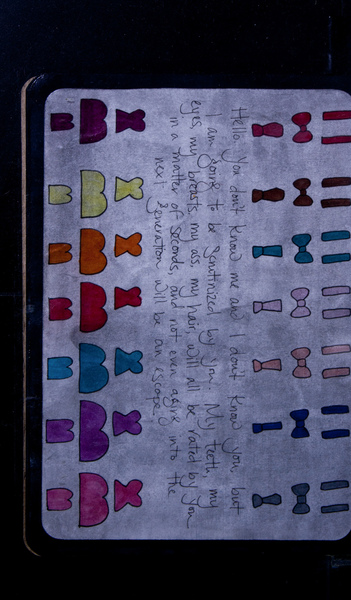 Hello you don't know me and I don't know you, but
I am going to be scrutinized by you. My teeth, my
eyes, my breasts, my ass, my hair, will all be rated by you
in a matter of seconds, and not even into the
next generation will be an escape.